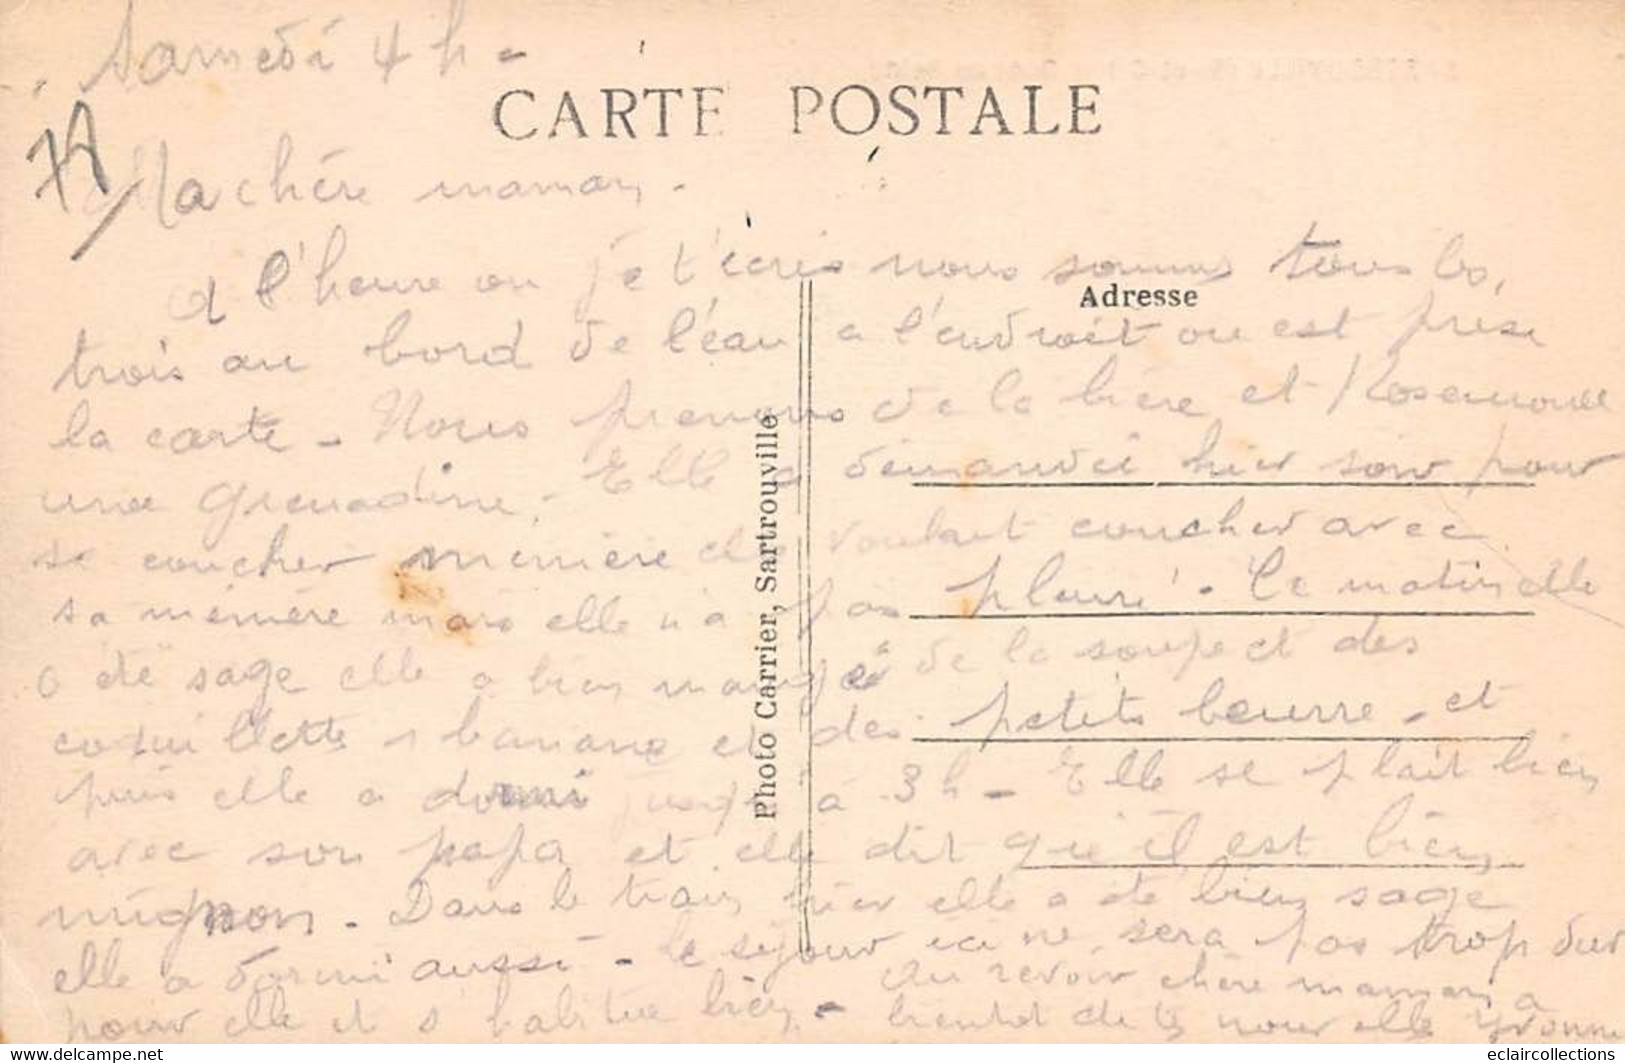 Samedi 4 h -
CARTE POSTALE
78
Ma chère maman -
A l'heure ou je t'écris nous sommes tous les
Adresse
trois au bord de l'eau a l'endroit ou est prise
la carte - Nous prenons de la bière et Rosemonde
une grenadine. Elle a demandé hier soir pour
se coucher mémère elle voulait coucher avec
sa mémère mais elle n'a pas pleuré - Ce matin elle
a été sage elle a bien mangé de la soupe et des
coquillettes 1 banane et des petits beurre - et
puis elle a dormi jusqu'à 3 h - Elle se plait bien
avec son papa et elle dit qu'il est bien
mignon - Dans le train hier elle a été bien sage
elle a dormi aussi - le séjour ici ne sera pas trop dur
pour elle et s'habitue bien - Au revoir chère maman a
bientot de tes nouvelle Yvonne
Photo Carrier, Sartrouville
eclaircollections